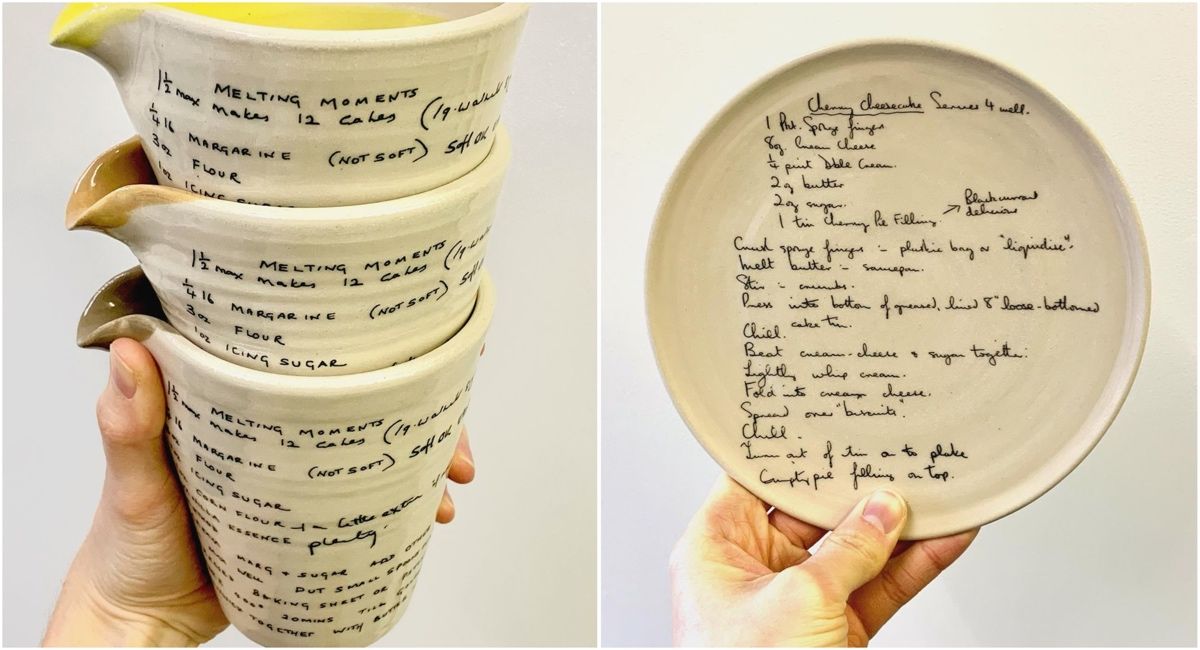 1½ max MELTING MOMENTS
makes 12 cakes
¼ lb MARGARINE (NOT SOFT) Soft OK
3oz FLOUR
1oz ICING SUGAR
1½ max MELTING MOMENTS
makes 12 cakes
¼ lb MARGARINE (NOT SOFT)
3oz FLOUR
1oz ICING SUGAR
1½ max MELTING MOMENTS
makes 12 cakes
MARGARINE (NOT SOFT) Soft OK
FLOUR
ICING SUGAR
CORN FLOUR + little extra
ESSENCE plenty.
MARG + SUGAR ADD
WELL PUT SMALL
BAKING SHEET OR
20MINS TILL
TOGETHER WITH
Cherry Cheesecake Serves 4 well.
1 Pkt. Sponge fingers
8oz. Cream Cheese
¼ pint Dble Cream.
2oz butter
2oz sugar.
1 tin Cherry Pie Filling. → Blackcurrant delicious
Crush sponge fingers :- plastic bag or "liquidise".
Melt butter :- saucepan.
Stir in crumbs.
Press into bottom of greased, lined 8" loose-bottomed
cake tin.
Chill.
Beat cream-cheese & sugar together.
Lightly whip cream.
Fold into cream cheese.
Spread over "biscuits".
Chill.
Turn out of tin on to plate
Empty pie filling on top.